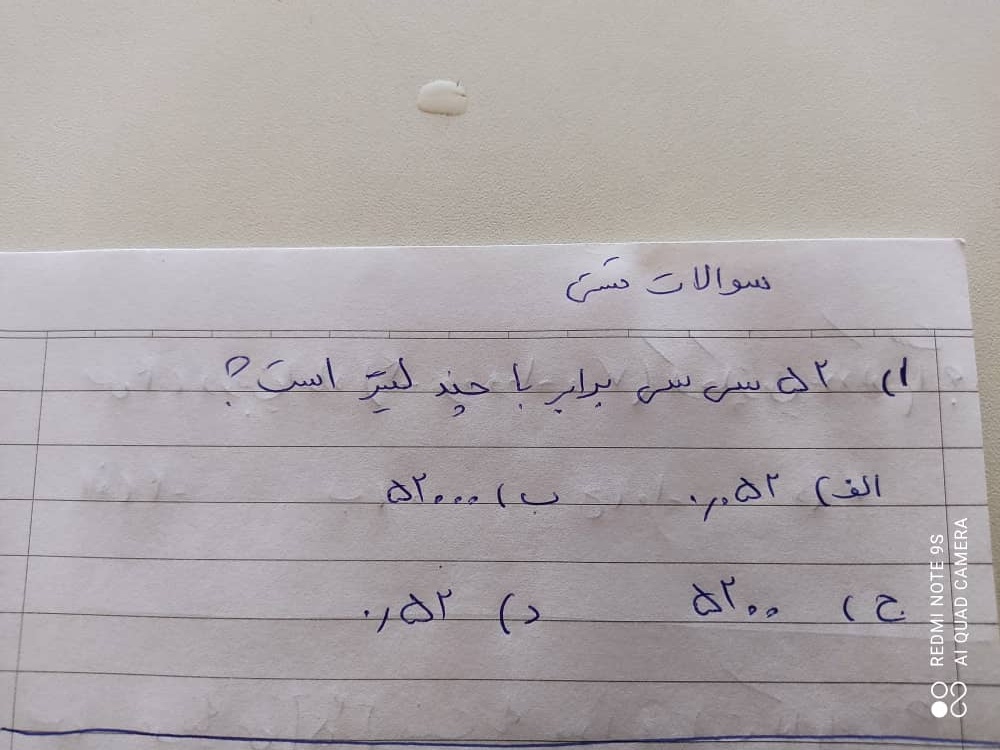 سوالات تستی
۱) ۵۲ سی سی برابر با چند لیتر است؟
الف) ۰٫۰۵۲ ب) ۵۲۰۰۰
ج) ۵۲۰۰ د) ۰٫۵۲
REDMI NOTE 9S
AI QUAD CAMERA